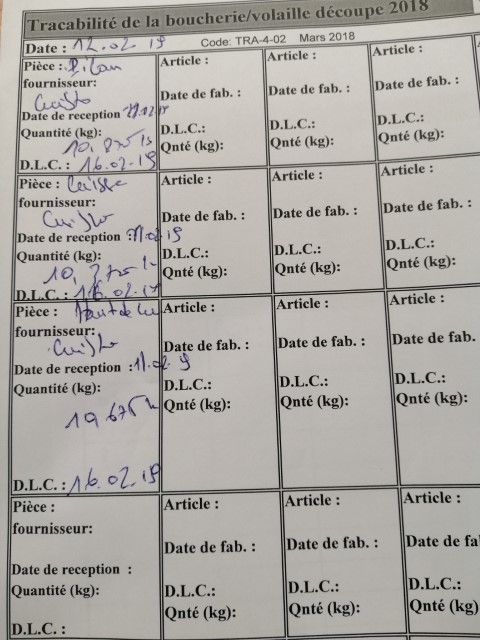 Tracabilité de la boucherie/volaille découpe 2018
Date : 12.02.19 Code: TRA-4-02 Mars 2018
Pièce : Pilon
fournisseur:
Date de reception
Quantité (kg):
10,875
D.L.C. : 16.02.19
Article :
Date de fab. :
D.L.C.:
Qnté (kg):
Article :
Date de fab. :
D.L.C.:
Qnté (kg):
Article :
Date de fab. :
D.L.C.:
Qnté (kg):
Pièce : Cuisse
fournisseur:
Date de reception : 11.02.19
Quantité (kg):
D.L.C. : 16.02.19
Article :
Date de fab. :
D.L.C.:
Qnté (kg):
Article :
Date de fab. :
D.L.C.:
Qnté (kg):
Article :
Date de fab. :
D.L.C.:
Qnté (kg):
Pièce : Haut de
fournisseur:
Date de reception : 11.02.19
Quantité (kg):
19 675
D.L.C. : 16.02.19
Article :
Date de fab. :
D.L.C.:
Qnté (kg):
Article :
Date de fab. :
D.L.C.:
Qnté (kg):
Article :
Date de fab.
D.L.C.:
Qnté (kg):
Pièce :
fournisseur:
Date de reception :
Quantité (kg):
D.L.C. :
Article :
Date de fab. :
D.L.C.:
Qnté (kg):
Article :
Date de fab. :
D.L.C.:
Qnté (kg):
Article :
Date de fa
D.L.C.:
Qnté (kg):